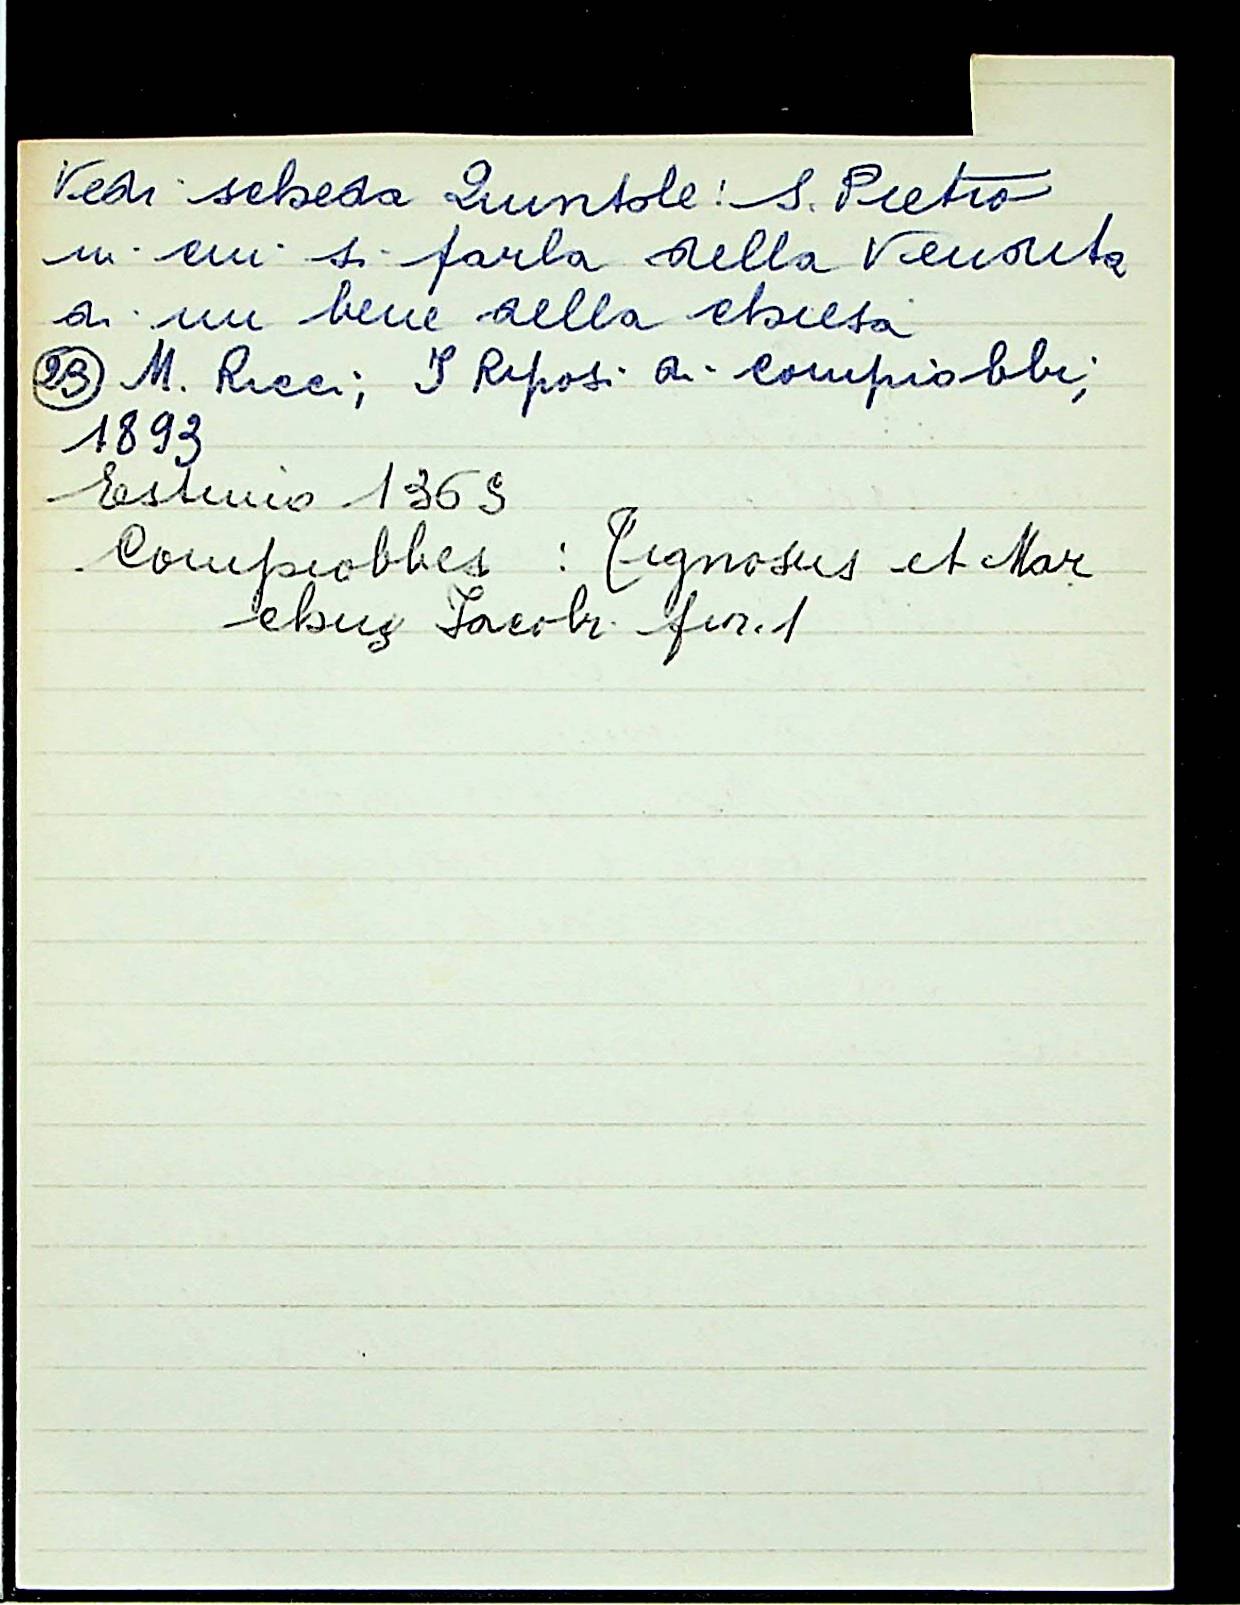 Vedi scheda Quintole: S. Pietro
in cui si parla della Vendita
di un bene della chiesa
23 M. Ricci; I Riposi di Compiobbi;
1893
Estimo 1365
Compiobbes : Tignosus et Mar
chus Jacobi fior. 1